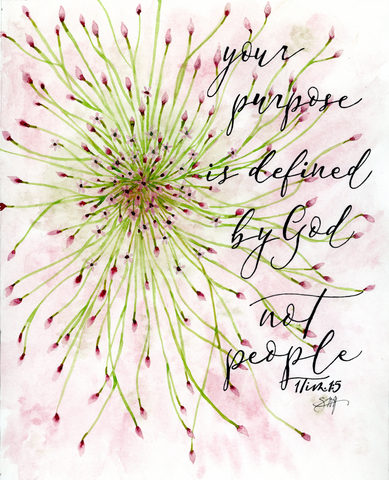 your
purpose
is defined
by God
not
people